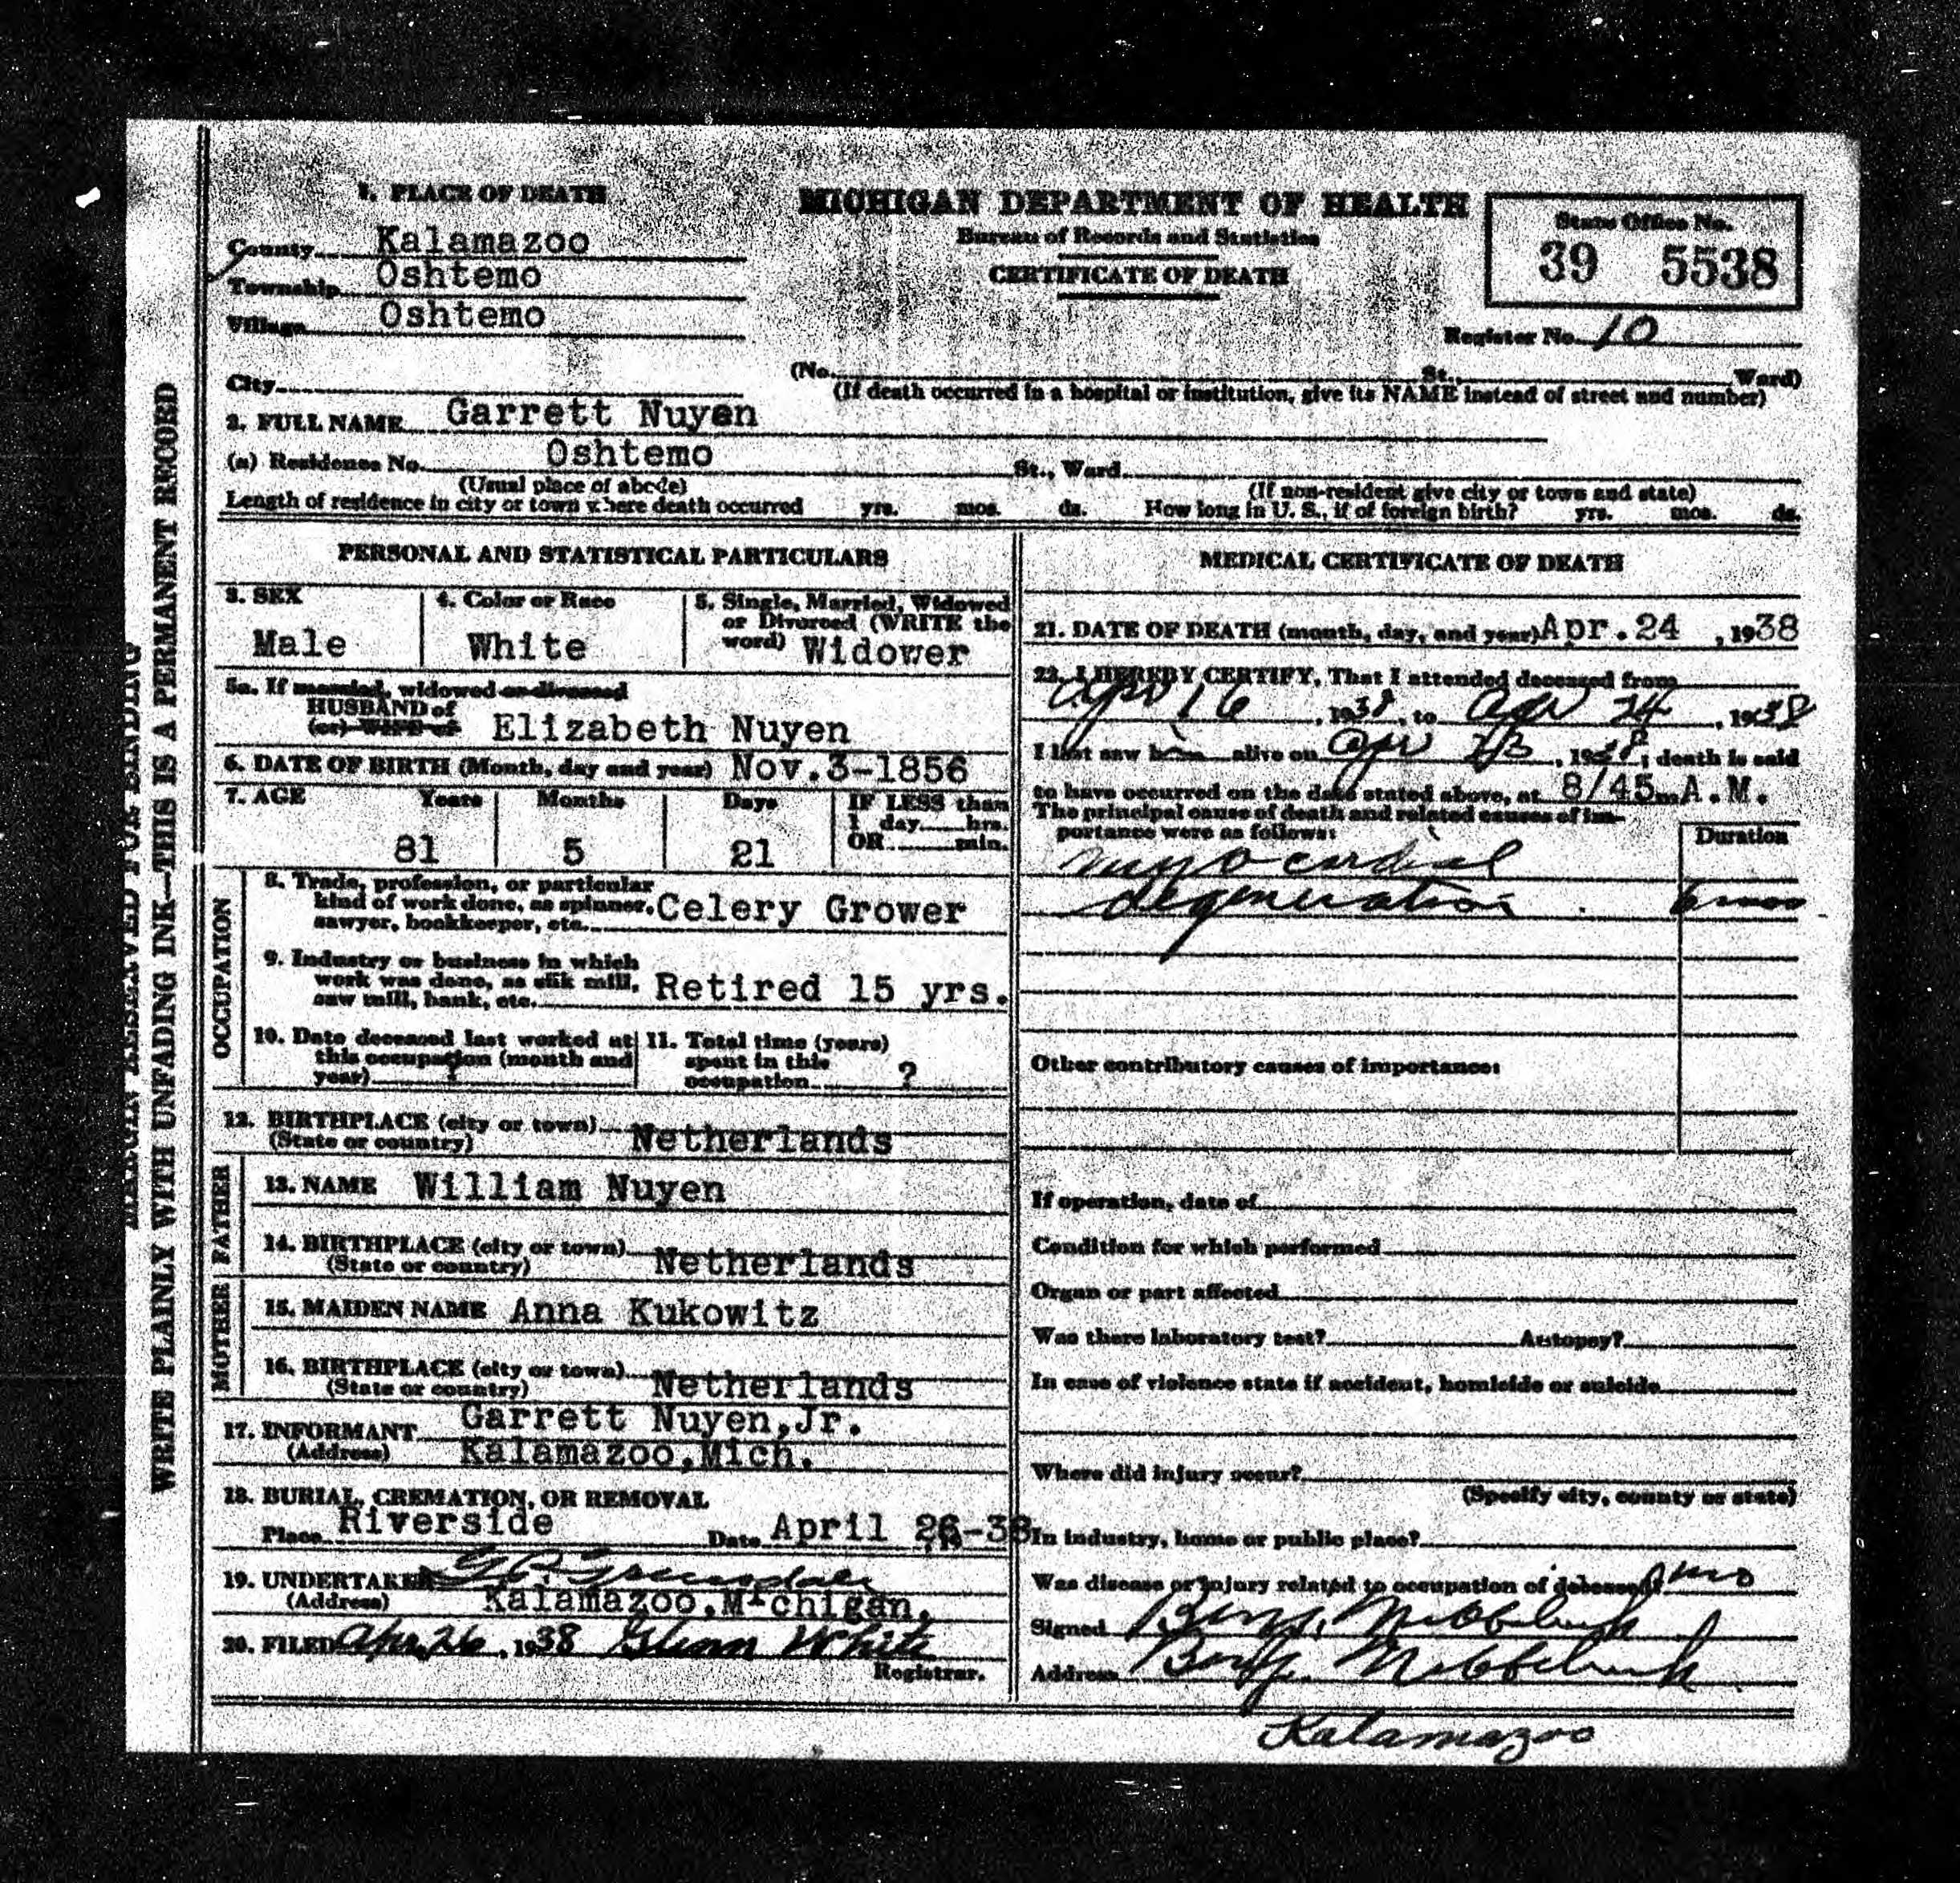 MARGIN RESERVED FOR BINDING
WRITE PLAINLY WITH UNFADING INK—THIS IS A PERMANENT RECORD
1. PLACE OF DEATH
County Kalamazoo
Township Oshtemo
Village Oshtemo
City
MICHIGAN DEPARTMENT OF HEALTH
Bureau of Records and Statistics
CERTIFICATE OF DEATH
State Office No.
39 5538
Register No. 10
(No. St., Ward)
(If death occurred in a hospital or institution, give its NAME instead of street and number)
2. FULL NAME Garrett Nuyen
(a) Residence No. Oshtemo St., Ward
(Usual place of abode) (If non-resident give city or town and state)
Length of residence in city or town where death occurred yrs. mos. ds. How long in U. S., if of foreign birth? yrs. mos. ds.
PERSONAL AND STATISTICAL PARTICULARS
3. SEX
Male
4. Color or Race
White
5. Single, Married, Widowed
or Divorced (WRITE the
word) Widower
5a. If married, widowed or divorced
HUSBAND of
(or) WIFE of Elizabeth Nuyen
6. DATE OF BIRTH (Month, day and year) Nov.3-1856
7. AGE Years Months Days IF LESS than
1 day hrs.
OR min.
81 5 21
OCCUPATION
8. Trade, profession, or particular
kind of work done, as spinner,
sawyer, bookkeeper, etc. Celery Grower
9. Industry or business in which
work was done, as silk mill,
saw mill, bank, etc. Retired 15 yrs.
10. Date deceased last worked at
this occupation (month and
year) ?
11. Total time (years)
spent in this
occupation ?
12. BIRTHPLACE (city or town)
(State or country) Netherlands
FATHER
13. NAME William Nuyen
14. BIRTHPLACE (city or town)
(State or country) Netherlands
MOTHER
15. MAIDEN NAME Anna Kukowitz
16. BIRTHPLACE (city or town)
(State or country) Netherlands
17. INFORMANT Garrett Nuyen,Jr.
(Address) Kalamazoo,Mich.
18. BURIAL, CREMATION, OR REMOVAL
Place Riverside Date April 26-38
19. UNDERTAKER
(Address) Kalamazoo,Michigan.
20. FILED Apr 26, 1938 Glenn White
Registrar.
MEDICAL CERTIFICATE OF DEATH
21. DATE OF DEATH (month, day, and year) Apr.24, 1938
22. I HEREBY CERTIFY, That I attended deceased from
Apr 16, 1938, to Apr 24, 1938
I last saw him alive on Apr 23, 1938; death is said
to have occurred on the date stated above, at 8/45m A.M.
The principal cause of death and related causes of im-
portance were as follows:
Duration
myocardial
degeneration 6 mos
Other contributory causes of importance:
If operation, date of
Condition for which performed
Organ or part affected
Was there laboratory test? Autopsy?
In case of violence state if accident, homicide or suicide
Where did injury occur?
(Specify city, county or state)
In industry, home or public place?
Was disease or injury related to occupation of deceased?
Signed Benj.
Address Benj.
Kalamazoo